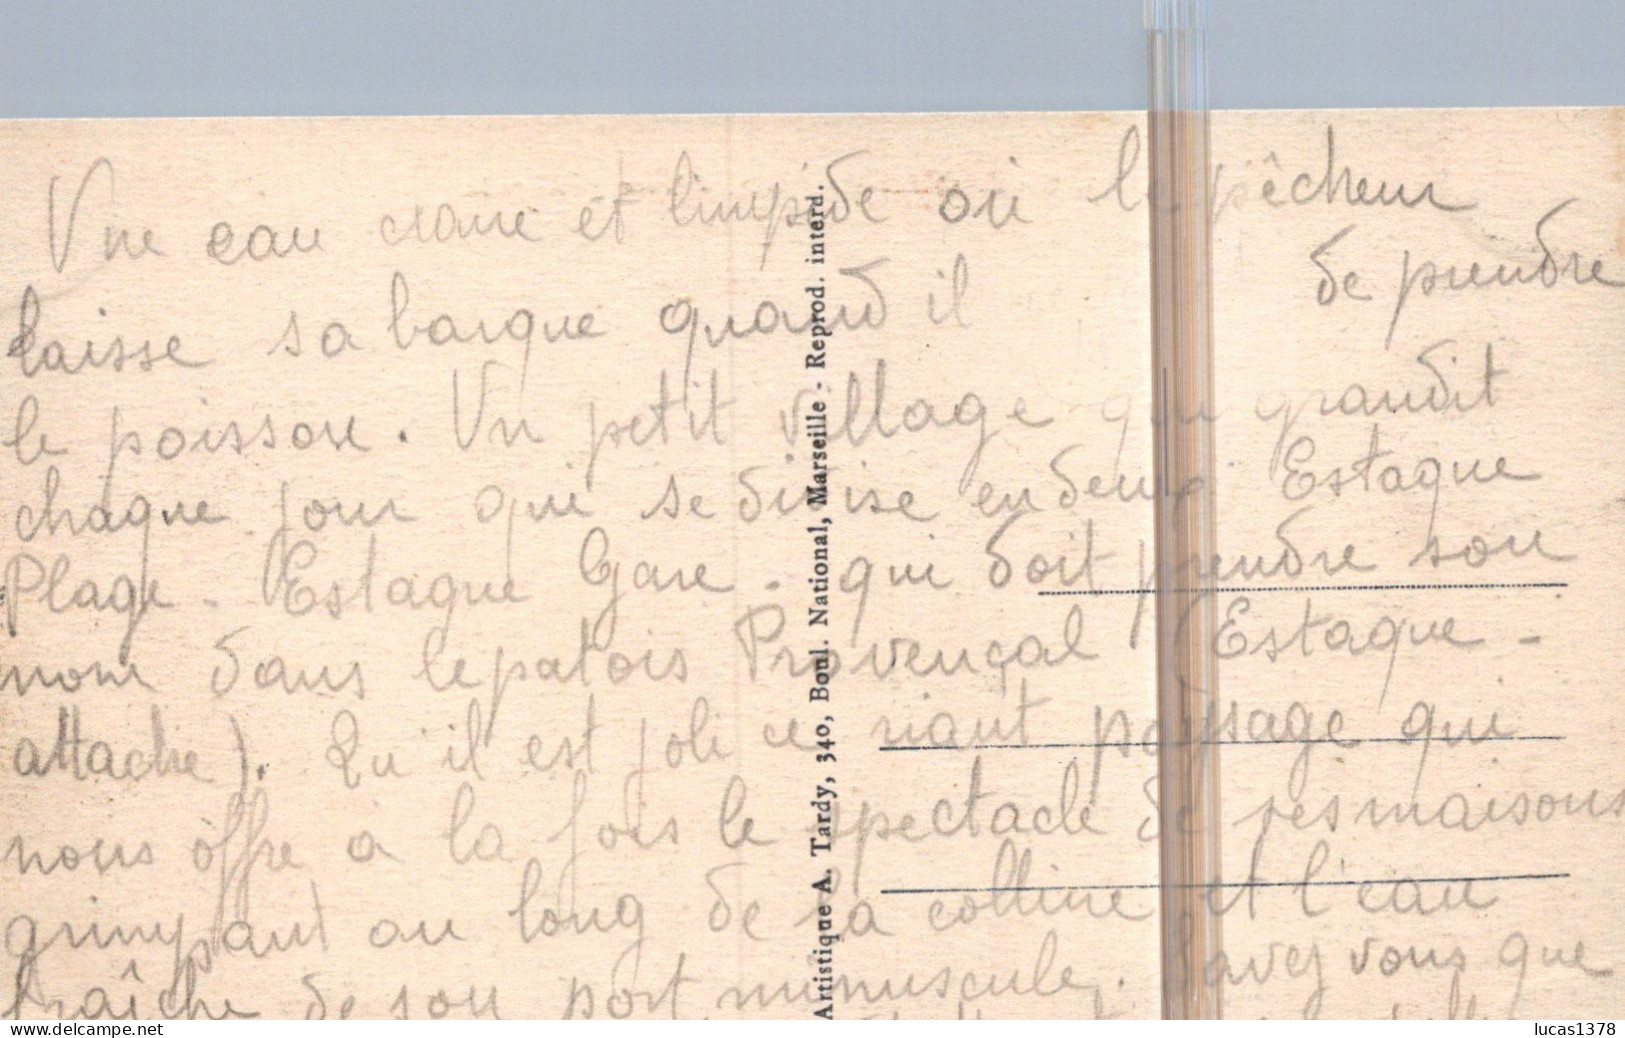 Une eau claire et limpide où le pêcheur
laisse sa barque quand il de prendre
le poisson. Un petit village qui grandit
chaque jour qui se divise en deux Estaque
Plage - Estaque Gare - qui doit prendre son
nom dans le patois Provençal (Estaque -
attache). Qu'il est joli ce riant paysage qui
nous offre a la fois le spectacle de ses maisons
grimpant au long de la colline et l'eau
fraîche de son port minuscule. Savez vous que
Artistique A. Tardy, 340, Boul. National, Marseille - Reprod. interd.
delcampe.net
lucas1378